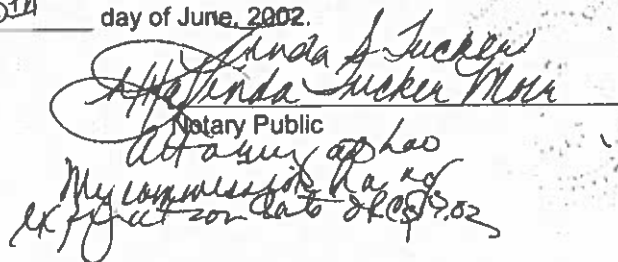 day of June, 2002.
Linda S Tucker
Linda Tucker Mour
Notary Public
Attorney
My commission has no
expiration date